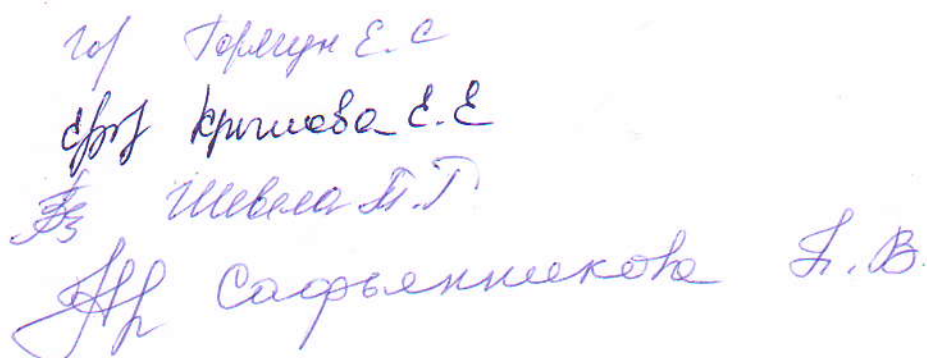 Горягун Е.С
Крылова Е.Е
Шевела Т.Г
Сафьянникова Т.В.